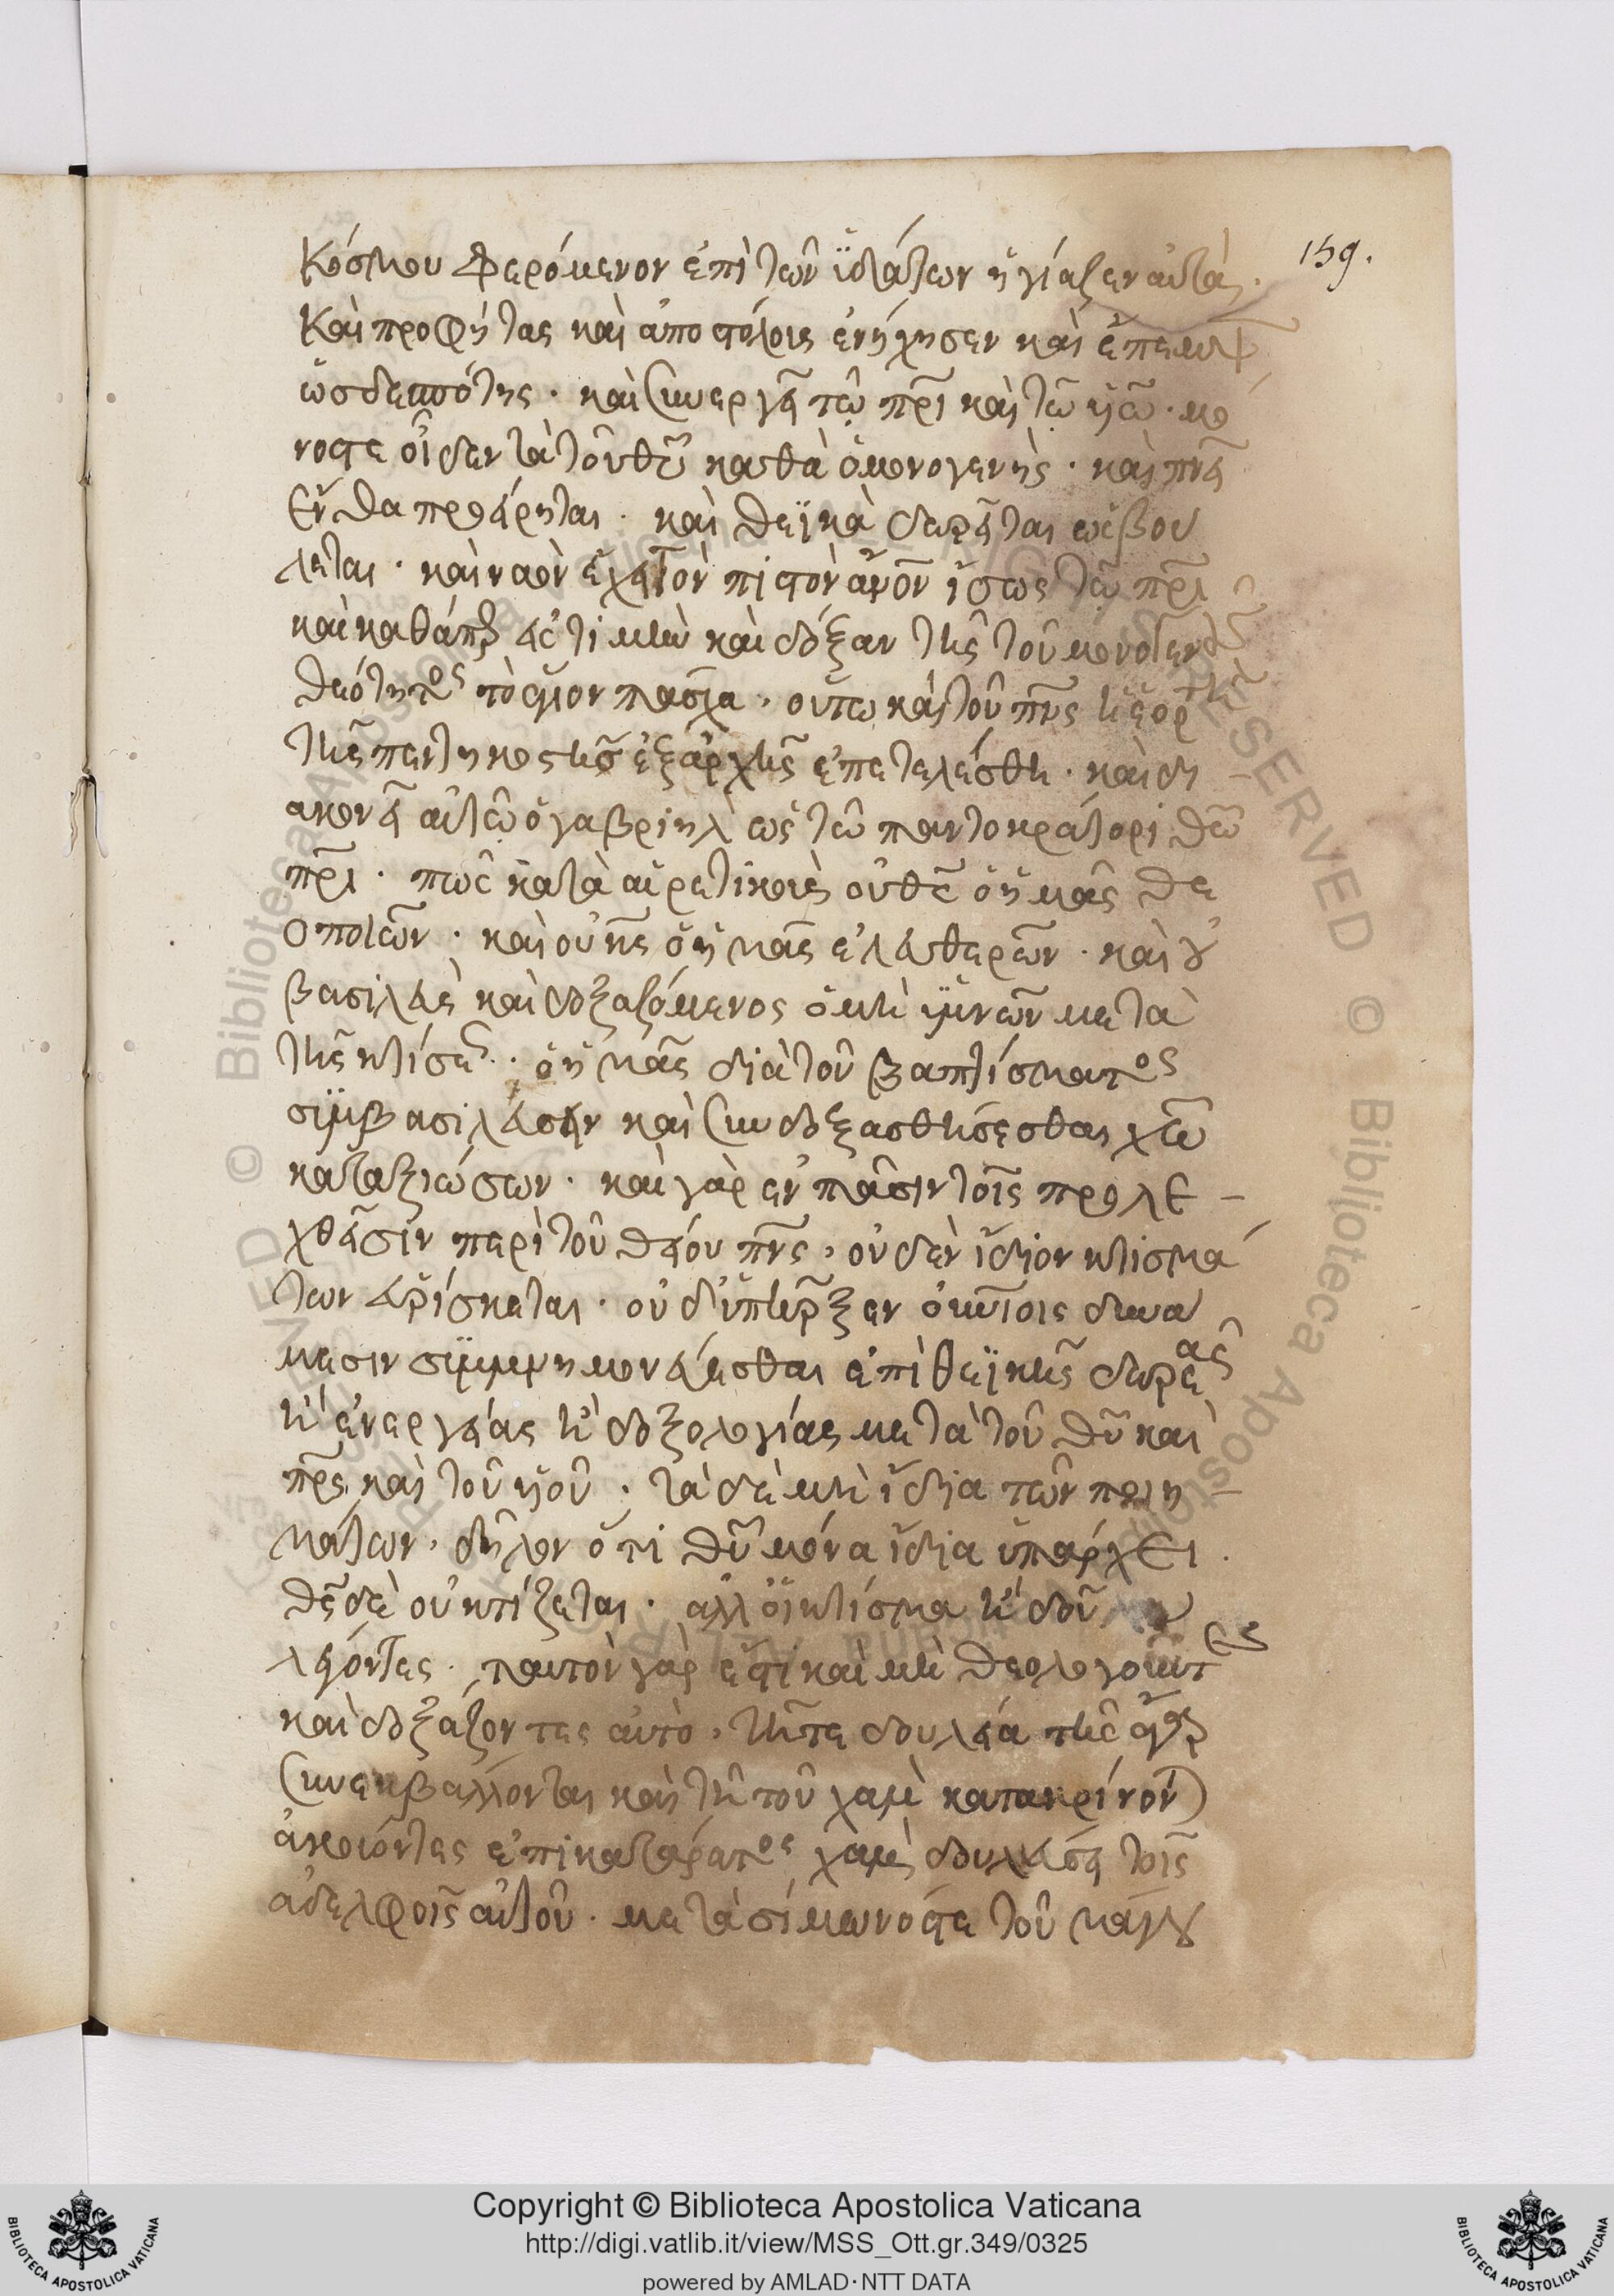 159.
κόσμου φερόμενον ἐπὶ τῶν ὑδάτων ἡγίαζεν αὐτὰ.
καὶ προφήτας καὶ ἀποστόλοις ἐνήχησεν καὶ ἔπεμψ
ὡς δεσπότης. καὶ συνεργεῖ τῷ πρῖ καὶ τῷ υἱῷ. μό
νοστε οἶδεν τὰ τοῦ θῦ καθὰ ὁ μονογενὴς. καὶ πνεῖ
ἔνθα προείρηται. καὶ θεϊκὰ δωρεῖται ὡς βού
λεται. καὶ ναὸν ἔχει τὸν πιστὸν ἄνον ἴσως τῷ πρῖ
καὶ καθάπερ εἰς τιμὴν καὶ δόξαν τῆς τοῦ μονογενοῦς
θεότητος τὸ ἅγιον πάσχα, οὕτω καὶ τοῦ πνς ἡ ἑορτὴ
τῆς πεντηκοστῆς ἐξἀρχῆς ἐπετελέσθη. καὶ δι
ακονεῖ αὐτῷ ὁ γαβριὴλ ὡς τῷ παντοκράτορι θῶ
πρι. πῶς κατὰ αἱρετικοὺς οὐ θς ὁ ἡμᾶς θε
οποιῶν. καὶ οὐ κς ὁ ἡμᾶς ἐλευθερῶν. καὶ οὐ
βασιλεὺς καὶ δοξαζόμενος ὁ μὴ ὑμνῶν μετὰ
τῆς κτίσεως. ὁ ἡμᾶς διὰ τοῦ βαπτίσματος
συμβασιλεύειν καὶ συνδοξασθήσεσθαι χῶ
καταξιώσων. καὶ γὰρ ἐν πᾶσιν τοῖς προλε-
χθεῖσιν περὶ τοῦ θείου πνς, οὐδὲν ἴδιον κτισμά
των εὑρίσκεται. οὐδ' ὑπῆρξεν ὁ κτίσις δυνα
μεσιν συμμνημονεύεσθαι ἐπὶ θεϊκῆς δωρεᾶς
ἢ ἐνεργείας ἢ δοξολογίας μετὰ τοῦ θῦ καὶ
πρς καὶ τοῦ υἱοῦ. τὰ δὲ μὴ ἴδια τῶν ποιη-
μάτων, δῆλον ὅτι θῦ μόνα ἴδια ὑπάρχει.
θς δὲ οὐ κτίζεται. ἀλλ' οἱ κτίσμα ἢ δοῦλον
λέγοντες. ταυτὸν γάρ ἐστι καὶ μὴ θεολογοῦντες
καὶ δοξάζοντες αὐτὸ, τῆτε δουλεία τῆς ἄγαρ
συνεκβάλλονται καὶ τῆ τοῦ χαμὲ κατακρίνον)
ἀκούοντες ἐπικατάρατος χαμὲ δουλεύσει τοῖς
ἀδελφοῖς αὐτοῦ. μετὰ σίμωνός τε τοῦ μάγου
Copyright © Biblioteca Apostolica Vaticana
http://digi.vatlib.it/view/MSS_Ott.gr.349/0325
powered by AMLAD·NTT DATA